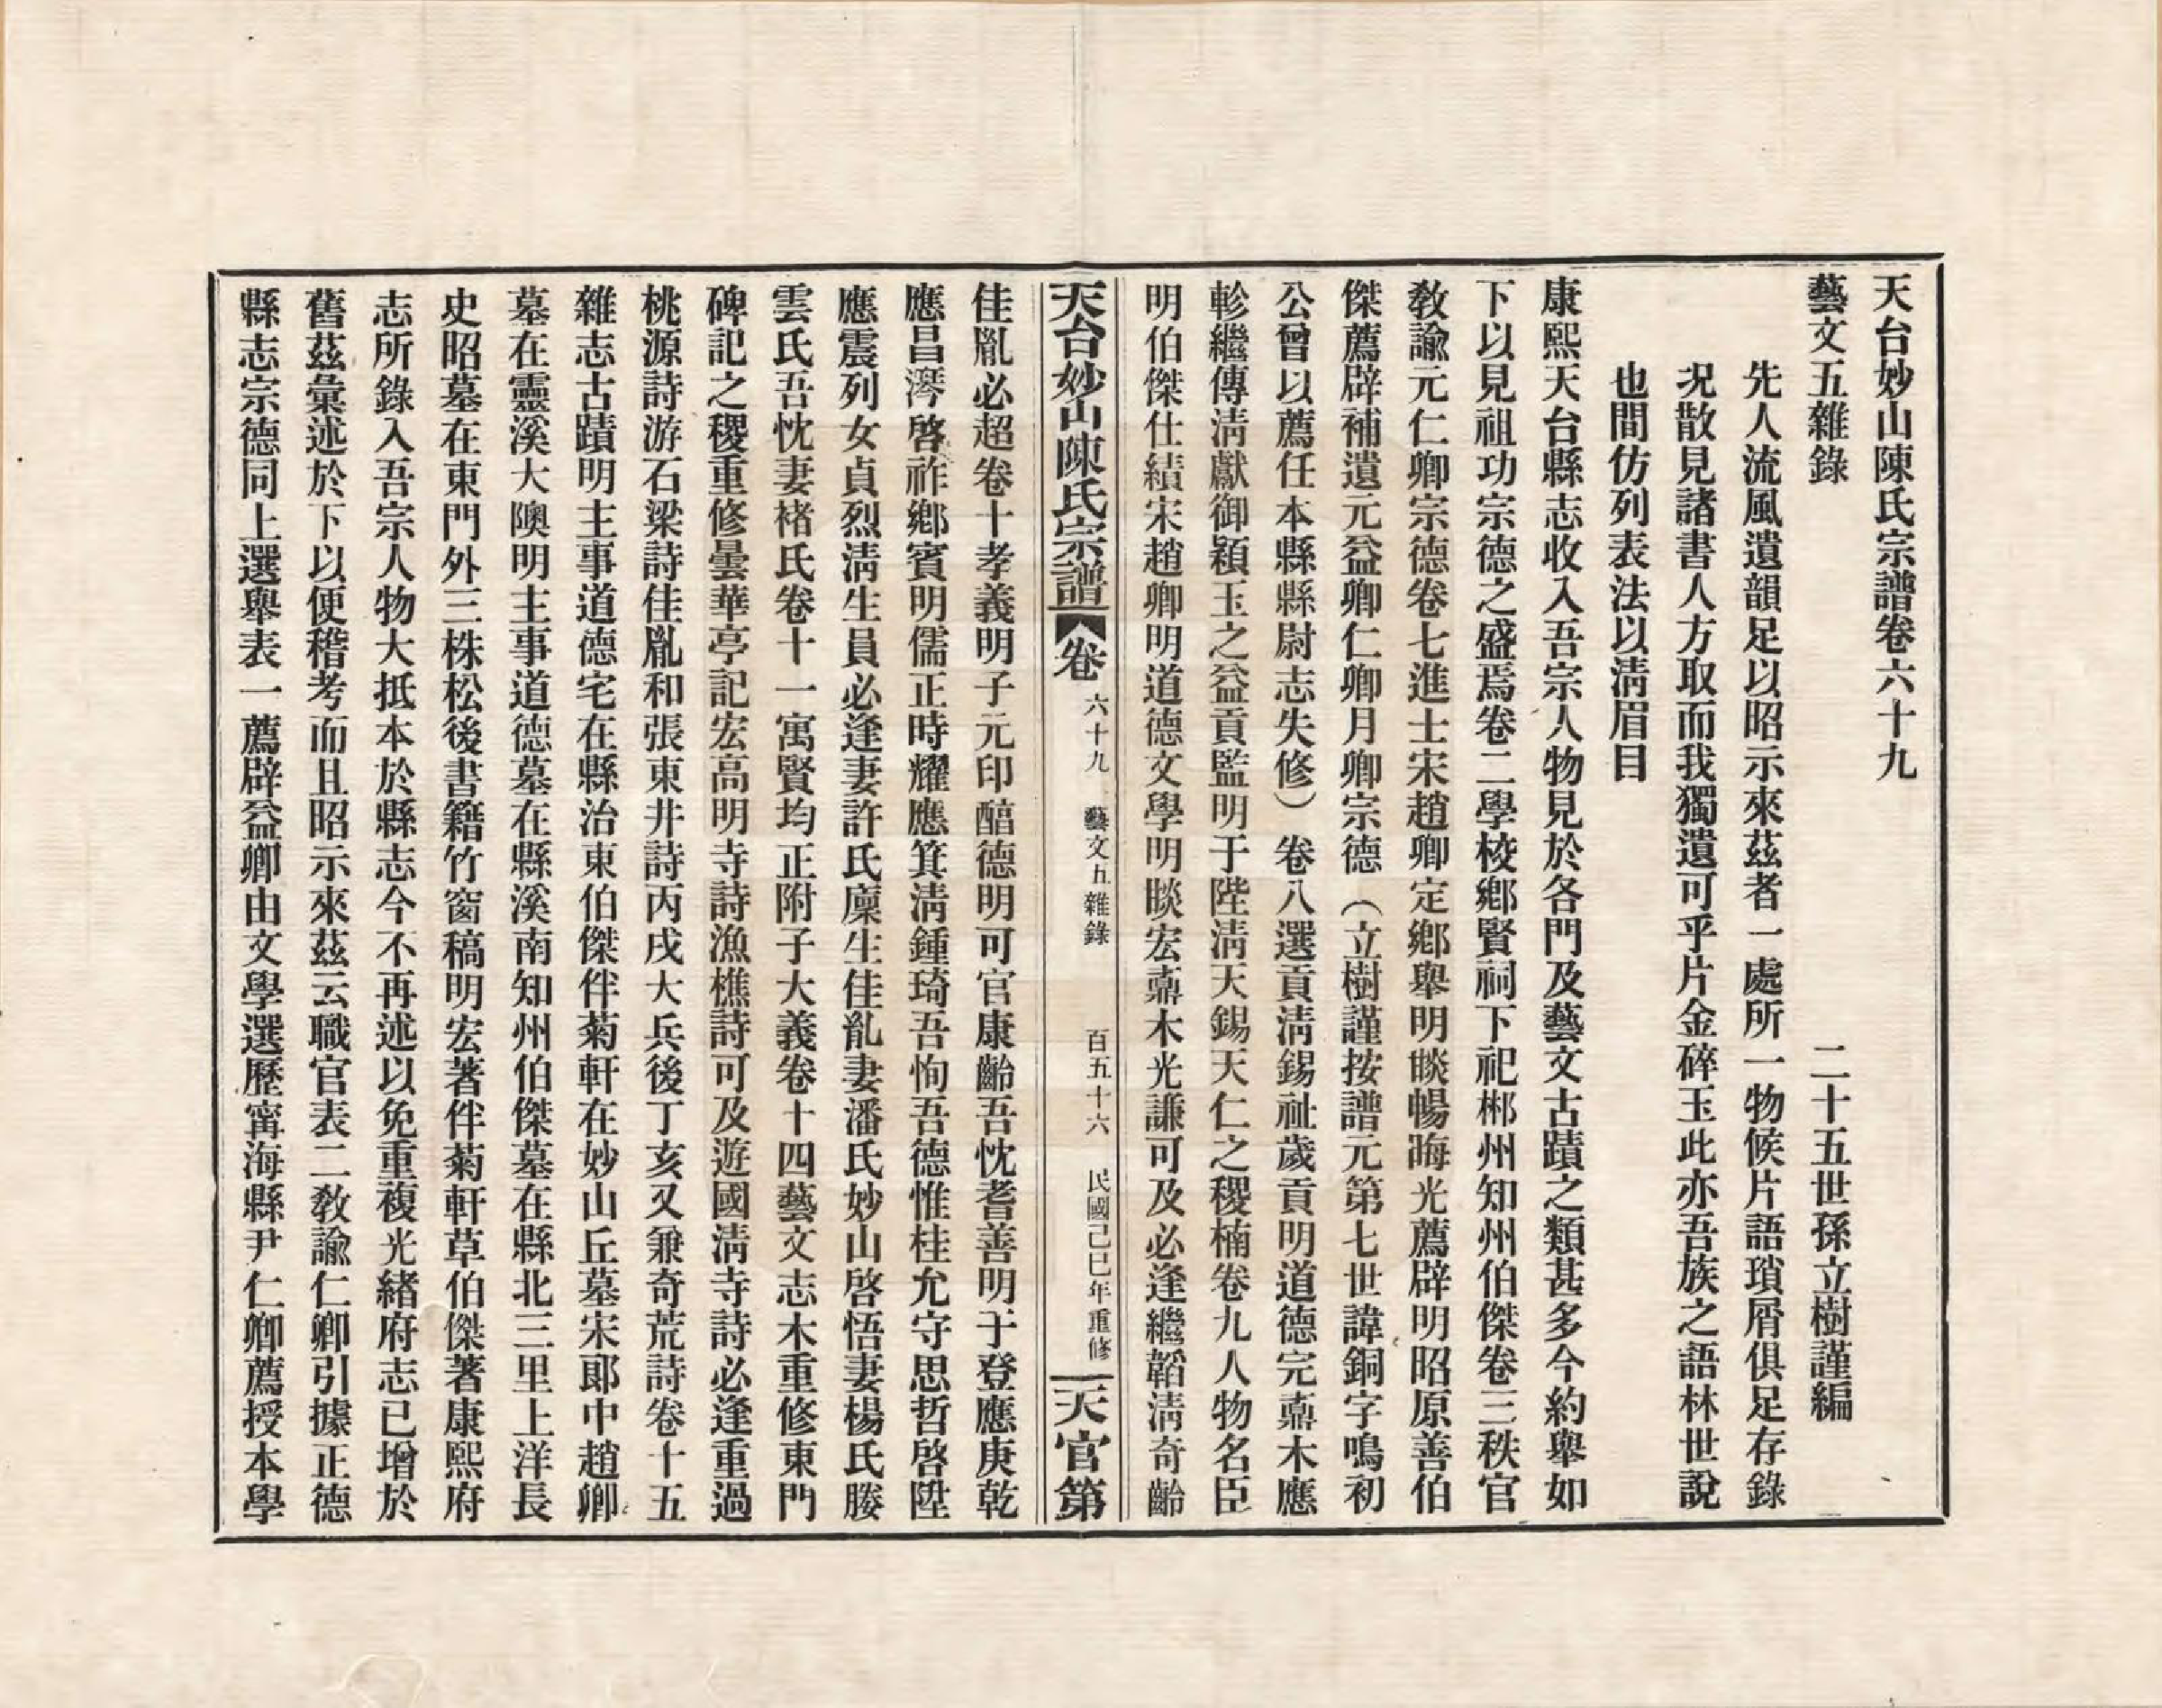 天台妙山陳氏宗譜卷六十九
藝文五雜錄
二十五世孫立樹謹編
先人流風遺韻足以昭示來茲者一處所一物候片語瑣屑俱足存錄
況散見諸書人方取而我獨遺可乎片金碎玉此亦吾族之語林世說
也間仿列表法以淸眉目
康熙天台縣志收入吾宗人物見於各門及藝文古蹟之類甚多今約舉如
下以見祖功宗德之盛焉卷二學校鄉賢祠下祀郴州知州伯傑卷三秩官
敎諭元仁卿宗德卷七進士宋趙卿定鄉舉明睒暢晦光薦辟明昭原善伯
傑薦辟補遺元益卿仁卿月卿宗德（立樹謹按譜元第七世諱銅字鳴初
公曾以薦任本縣縣尉志失修）卷八選貢淸錫祉歲貢明道德完鼒木應
軫繼傳淸獻御穎玉之益貢監明于陛淸天錫天仁之稷楠卷九人物名臣
明伯傑仕績宋趙卿明道德文學明睒宏鼒木光謙可及必逢繼韜淸奇齡
天台妙山陳氏宗譜 卷 六十九 藝文五雜錄 百五十六 民國己巳年重修 天官第
佳胤必超卷十孝義明子元印醕德明可官康齡吾忱耆善明于登應庚乾
應昌澪啓祚鄉賓明儒正時耀應箕淸鍾琦吾恂吾德惟桂允守思哲啓陞
應震列女貞烈淸生員必逢妻許氏廩生佳胤妻潘氏妙山啓悟妻楊氏媵
雲氏吾忱妻褚氏卷十一寓賢均正附子大義卷十四藝文志木重修東門
碑記之稷重修曇華亭記宏高明寺詩漁樵詩可及遊國淸寺詩必逢重過
桃源詩游石梁詩佳胤和張東井詩丙戌大兵後丁亥又兼奇荒詩卷十五
雜志古蹟明主事道德宅在縣治東伯傑伴菊軒在妙山丘墓宋郞中趙卿
墓在靈溪大隩明主事道德墓在縣溪南知州伯傑墓在縣北三里上洋長
史昭墓在東門外三株松後書籍竹窗稿明宏著伴菊軒草伯傑著康熙府
志所錄入吾宗人物大抵本於縣志今不再述以免重複光緖府志已增於
舊茲彙述於下以便稽考而且昭示來茲云職官表二敎諭仁卿引據正德
縣志宗德同上選舉表一薦辟益卿由文學選歷甯海縣尹仁卿薦授本學